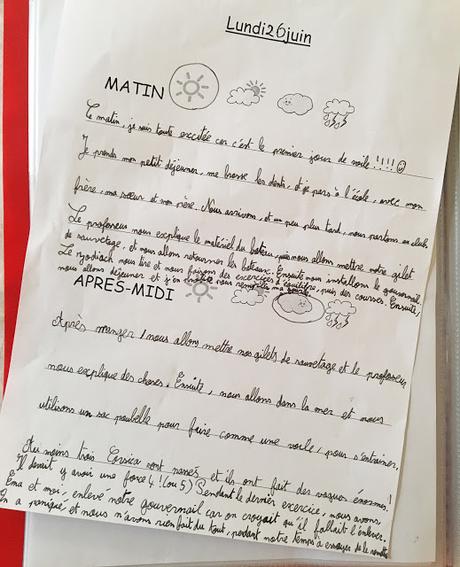 Lundi26juin
MATIN
Ce matin, je suis toute excitée car c'est le premier jour de voile !!!!
Je prends mon petit déjeuner, me brosse les dents, et je pars à l'école, avec mon
frère, ma sœur et mon père. Nous arrivons, et un peu plus tard, nous partons au club.
Le professeur nous explique le matériel du bateau, puis nous allons mettre notre gilet
de sauvetage, et nous allons retourner les bateaux. Ensuite nous installons le gouvernail.
Le zodiach nous tire et nous faisons des exercices d'équilibre, puis des courses. Ensuite,
nous allons déjeuner et j'en
APRES-MIDI
Après manger, nous allons mettre nos gilets de sauvetage et le professeur
nous explique des choses. Ensuite, nous allons dans la mer et nous
utilisons un sac poubelle pour faire comme une voile, pour s'entrainer.
Au moins trois Corsica sont passés et ils ont fait des vagues énormes !
Il devait y avoir une force 4 ! (ou 5) Pendant le dernier exercice, nous avons,
Ema et moi, enlevé notre gouvernail car on croyait qu'il fallait l'enlever.
On a paniqué et nous n'avons rien fait du tout, perdant notre temps à essayer de le remettre